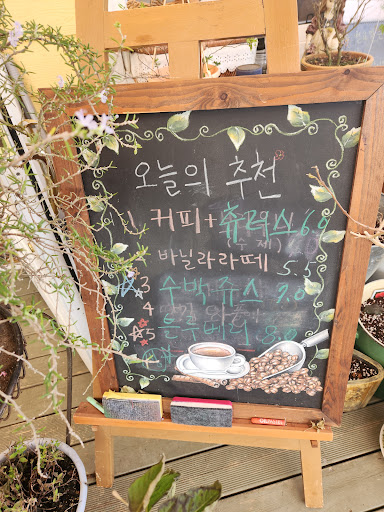 오늘의 추천
1 커피+츄러스 6.9
바닐라라떼 5.5
3 수박쥬스 7.0
4
블루베리 8.0